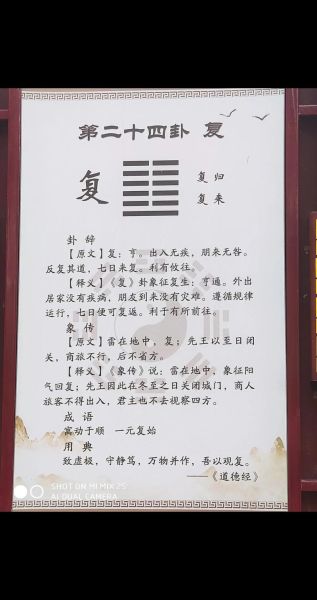 第二十四卦 复
复
复归
复来
卦辞
【原文】复:亨。出入无疾,朋来无咎。
反复其道,七日来复。利有攸往。
【释义】《复》卦象征复生:亨通。外出
居家没有疾病,朋友到来没有灾难。遵循规律
运行,七日便可复返。利于有所前往。
象传
【原文】雷在地中,复;先王以至日闭
关,商旅不行,后不省方。
【释义】《象传》说:雷在地中,象征阳
气回复;先王因此在冬至之日关闭城门,商人
旅客不得出入,君主也不去视察四方。
成语
寓动于顺 一元复始
用典
致虚极,守静笃,万物并作,吾以观复。
——《道德经》
SHOT ON MI MIX 2S
AI DUAL CAMERA